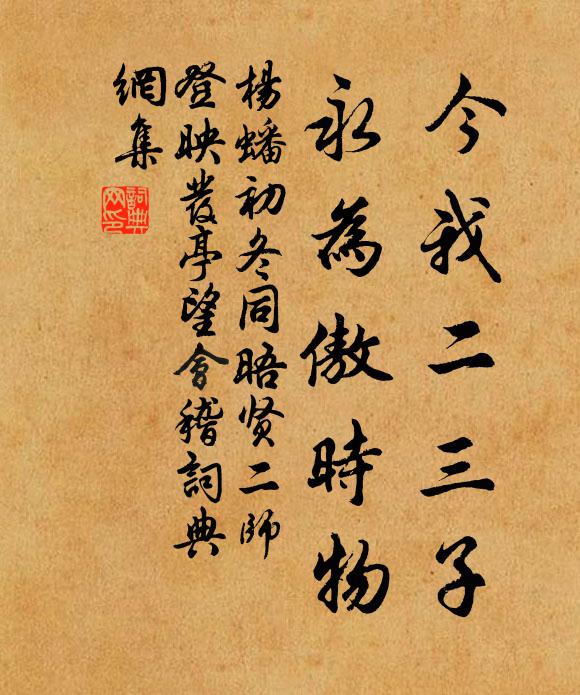 今我二三子
永為傲時物
楊蟠初冬同晤贤二師
登映發亭望會稽詞典
網集
詞典
网印